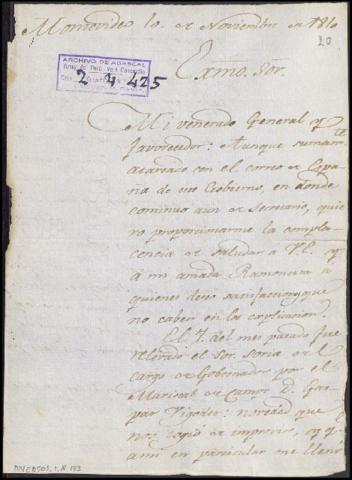 Montevideo 10 de Noviembre de 1810
20
ARCHIVO DE ABASCAL
2 4 425
Exmo. Sor.
Mi venerado General y
favorecedor: Aunque sumam.te
atareado con el correo de Espa-
ña de este Gobierno, en donde
continuo aun de Secretario, quie-
ro proporcionarme la compla-
cencia de saludar a V.E. y
á mi amada Ramoncita a
quienes deseo satisfacciones que
no caben en la explicacion.
El 7. del mes pasado fue
relevado el Sor. Soria de el
cargo de Gobernador por el
Mariscal de Campo D. Gas-
par Vigodet: novedad que
nos cogió de improviso, y q.e
a mi en particular me llenó
DIVERSOS, 1, N. 133